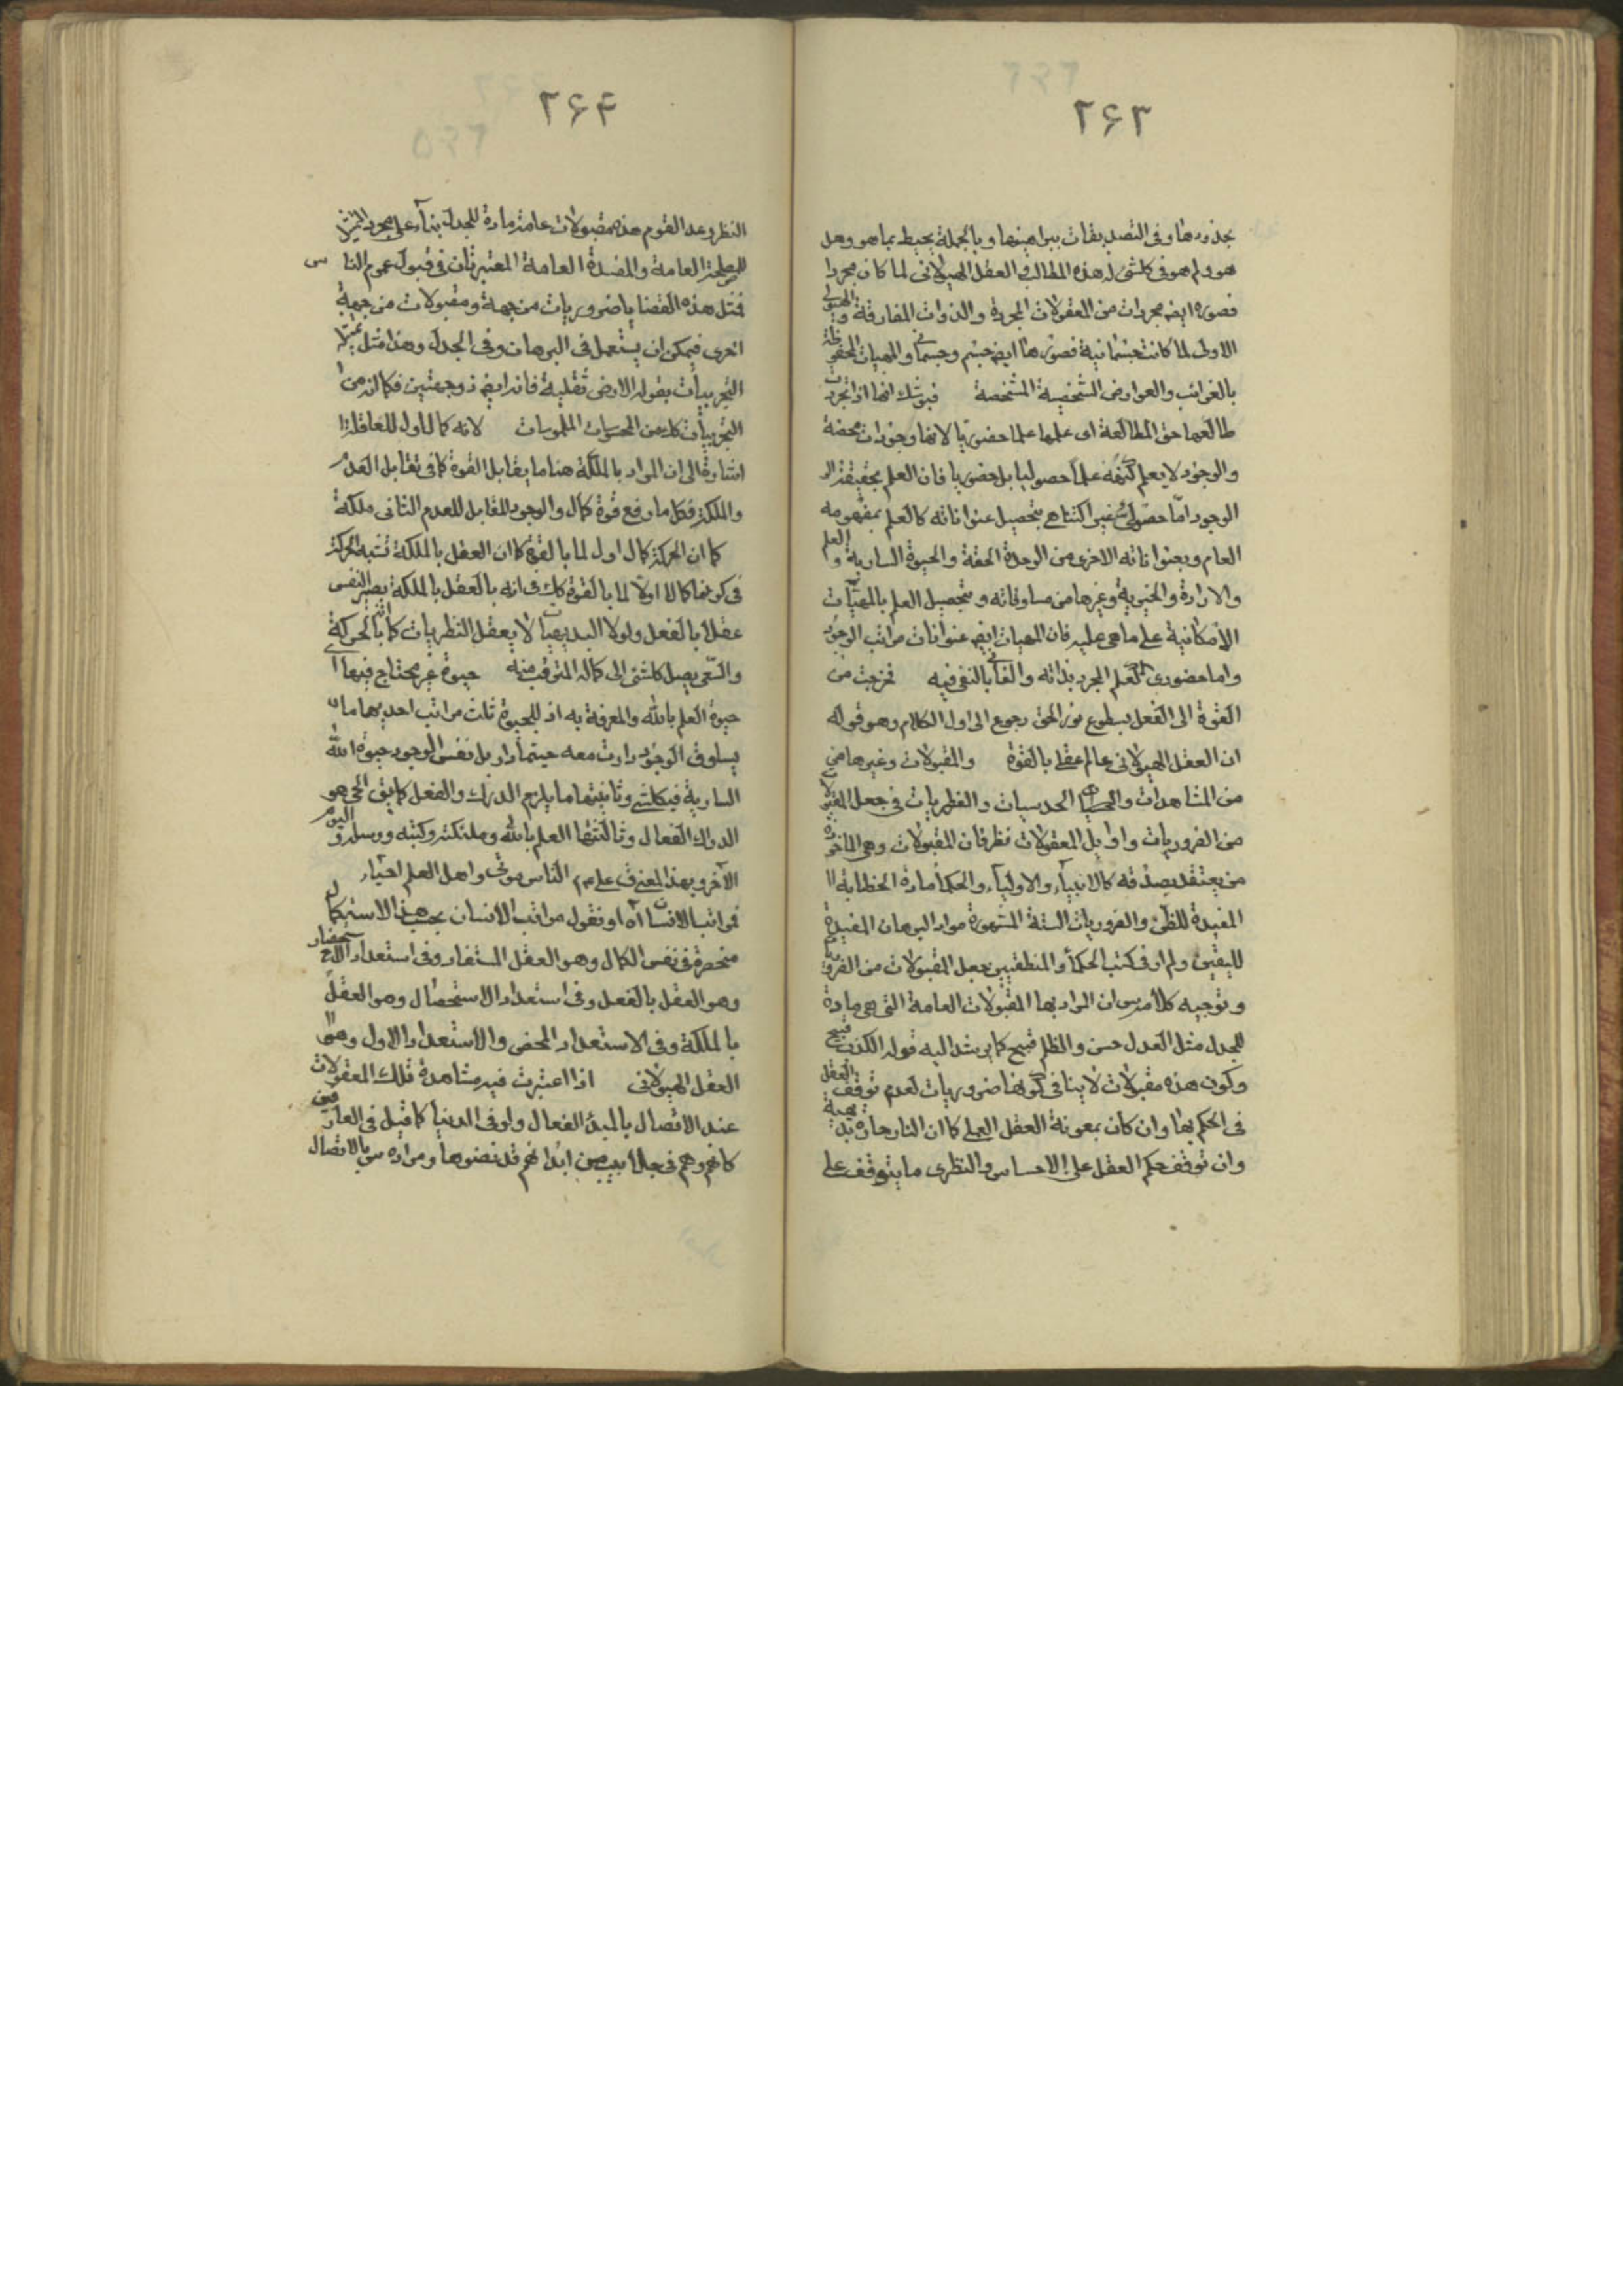 ٢۶٣
بحدودها وفى التصديقات ببراهينها وبالجملة يحيط بما هو وهل
هو ولم هو فى كلشئ له هذه المطالب والعقل الهيولانى لما كان مجردا
فصوره ايضا مجردات من المعقولات المجردة والذوات المفارقة والهيولى
الاولى لما كانت جسمانية فصورها ايضا جسم وجسمانى والمهيات المحفوفة
بالغرائب والعوارض الشخصية المشخصة فبوشك انها اذا تجردت
طالعها حق المطالعة اى علمها علما حضوريا لانها وجودات محضة
والوجود لا يعلم كنهه علما حصوليا بل حضوريا فان العلم بحقيقة
الوجود اما حصولى غير اكتناهى بتحصيل عنواناته كالعلم بمفهومه
العام وبعنواناته الاخرى من الوحدة الحقة والحيوة السارية والعلم
والارادة والخيرية وغيرها من مساوقاته وبتحصيل العلم بالمهيات
الامكانية على ما هى عليه فان المهيات ايضا عنوانات مراتب الوجود
واما حضورى كالعلم المجرد بذاته والفانى بالمفنى فيه فخرجت من
القوة الى الفعل بسطوع نور الحق رجوع الى اول الكلام وهو قوله
ان العقل الهيولانى عالم عقلى بالقوة والمقبولات وغيرها من
من المشاهدات الحدسيات والفطريات فى جعل المقبولات
من الضروريات واوايل المعقولات نظر فان المقبولات وهى الماخوذة
من يعتقد بصدقه كالانبياء والاولياء والحكماء مادة الخطابة
المفيدة للظن والضروريات الستة المشهورة مواد البرهان المفيدة
لليقين ولم ار فى كتب الحكماء والمنطقيين جعل المقبولات من الضروريات
وتوجيه كلامه س ان المراد بها المقبولات العامة التى هى مادة
للجدل مثل العدل حسن والظلم قبيح كما يرشد اليه قوله الكذب قبيح
وكون هذه مقبولات لا ينافى كونها ضروريات لعدم توقف العقل
فى الحكم بها وان كان بمعونة العقل العملى كما ان النار حارة بديهية
وان توقف حكم العقل على الاحساس والنظرى ما يتوقف على
٢۶۴
النظر وعد القوم هذه مقبولات عامة مادة للجدل بناء على مجرد التمثيل
للمصلحة العامة والمفسدة العامة المعتبرتان فى قبول عموم الناس
فمثل هذه القضايا ضروريات من جهة ومقبولات من جهة
اخرى فيمكن ان يستعمل فى البرهان وفى الجدل وهذا مثل
التجربيات بقوله الارض ثقليه فانه ايضا ذو جهتين فكما انه من
التجربيات كك من المحسوسات الملموسات لانه كمال اول للعاقلة
اشارة الى ان المراد بالملكة هنا ما يقابل القوة كما فى تقابل العدم
والملكة فكل ما رفع قوة كمال والوجود المقابل للعدم الثانى ملكة
كما ان الحركة كمال اول لما بالقوة كما ان العقل بالملكة تشبه الحركة
فى كونها كمالا اولا لما بالقوة كك فى انه بالعقل بالملكة يصير النفس
عقلا بالفعل ولولا البديهيات لا يعقل النظريات كما انه بالحركة
والسعى يصل كلشئ الى كماله المترقب منه حيوة غير محتاج فيها
حيوة العلم بالله والمعرفة به اذ للحيوة ثلث مراتب احديها ما
يساوق الوجود دارت معه حيثما دار بل نفس الوجود حيوة الله
السارية فى كلشئ وثانيتها ما يلزم الدرك والفعل كما يق الحى هو
الدراك الفعال وثالثتها العلم بالله وملئكته وكتبه ورسله واليوم
الآخر وبهذا المعنى ق على ع الناس موتى واهل العلم احياء
فمراتب الانسان اه او نقول مراتب الانسان بحسب هذا الاستكمال
منحصرة فى نفس الكمال وهو العقل المستفاد وفى استعداد الاستحضار
وهو العقل بالفعل وفى استعداد الاستحصال وهو العقل
بالملكة وفى الاستعداد المحض والاستعداد الاول وهو
العقل الهيولانى اذا اعتبرت فيه مشاهدة تلك المعقولات
عند الاتصال بالمبدء الفعال ولو فى الدنيا كما قيل فى العارفين
كانهم وهم فى جلابيب من ابدانهم قد نضوها ومراده س بالاتصال